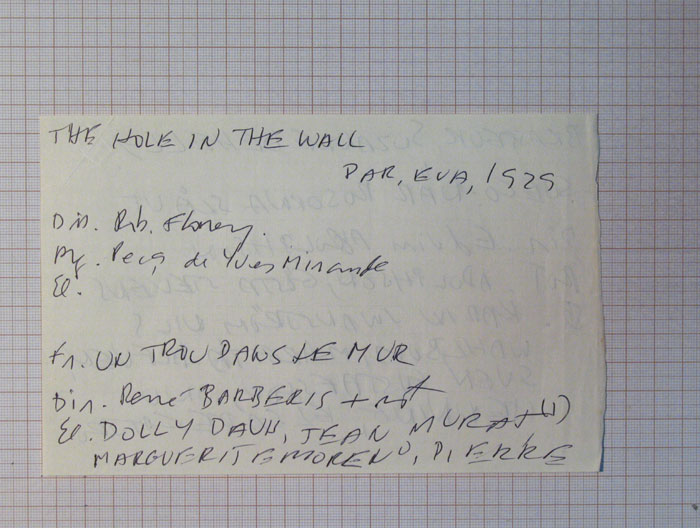 THE HOLE IN THE WALL
PAR, EUA, 1929
Dir. Rob. Florey.
Arg. Peça de Yves Mirande
El.
Fr. UN TROU DANS LE MUR
Dir. René BARBERIS +
El. DOLLY DAVIS, JEAN MURAT (1)
MARGUERITE MORENO, PIERRE